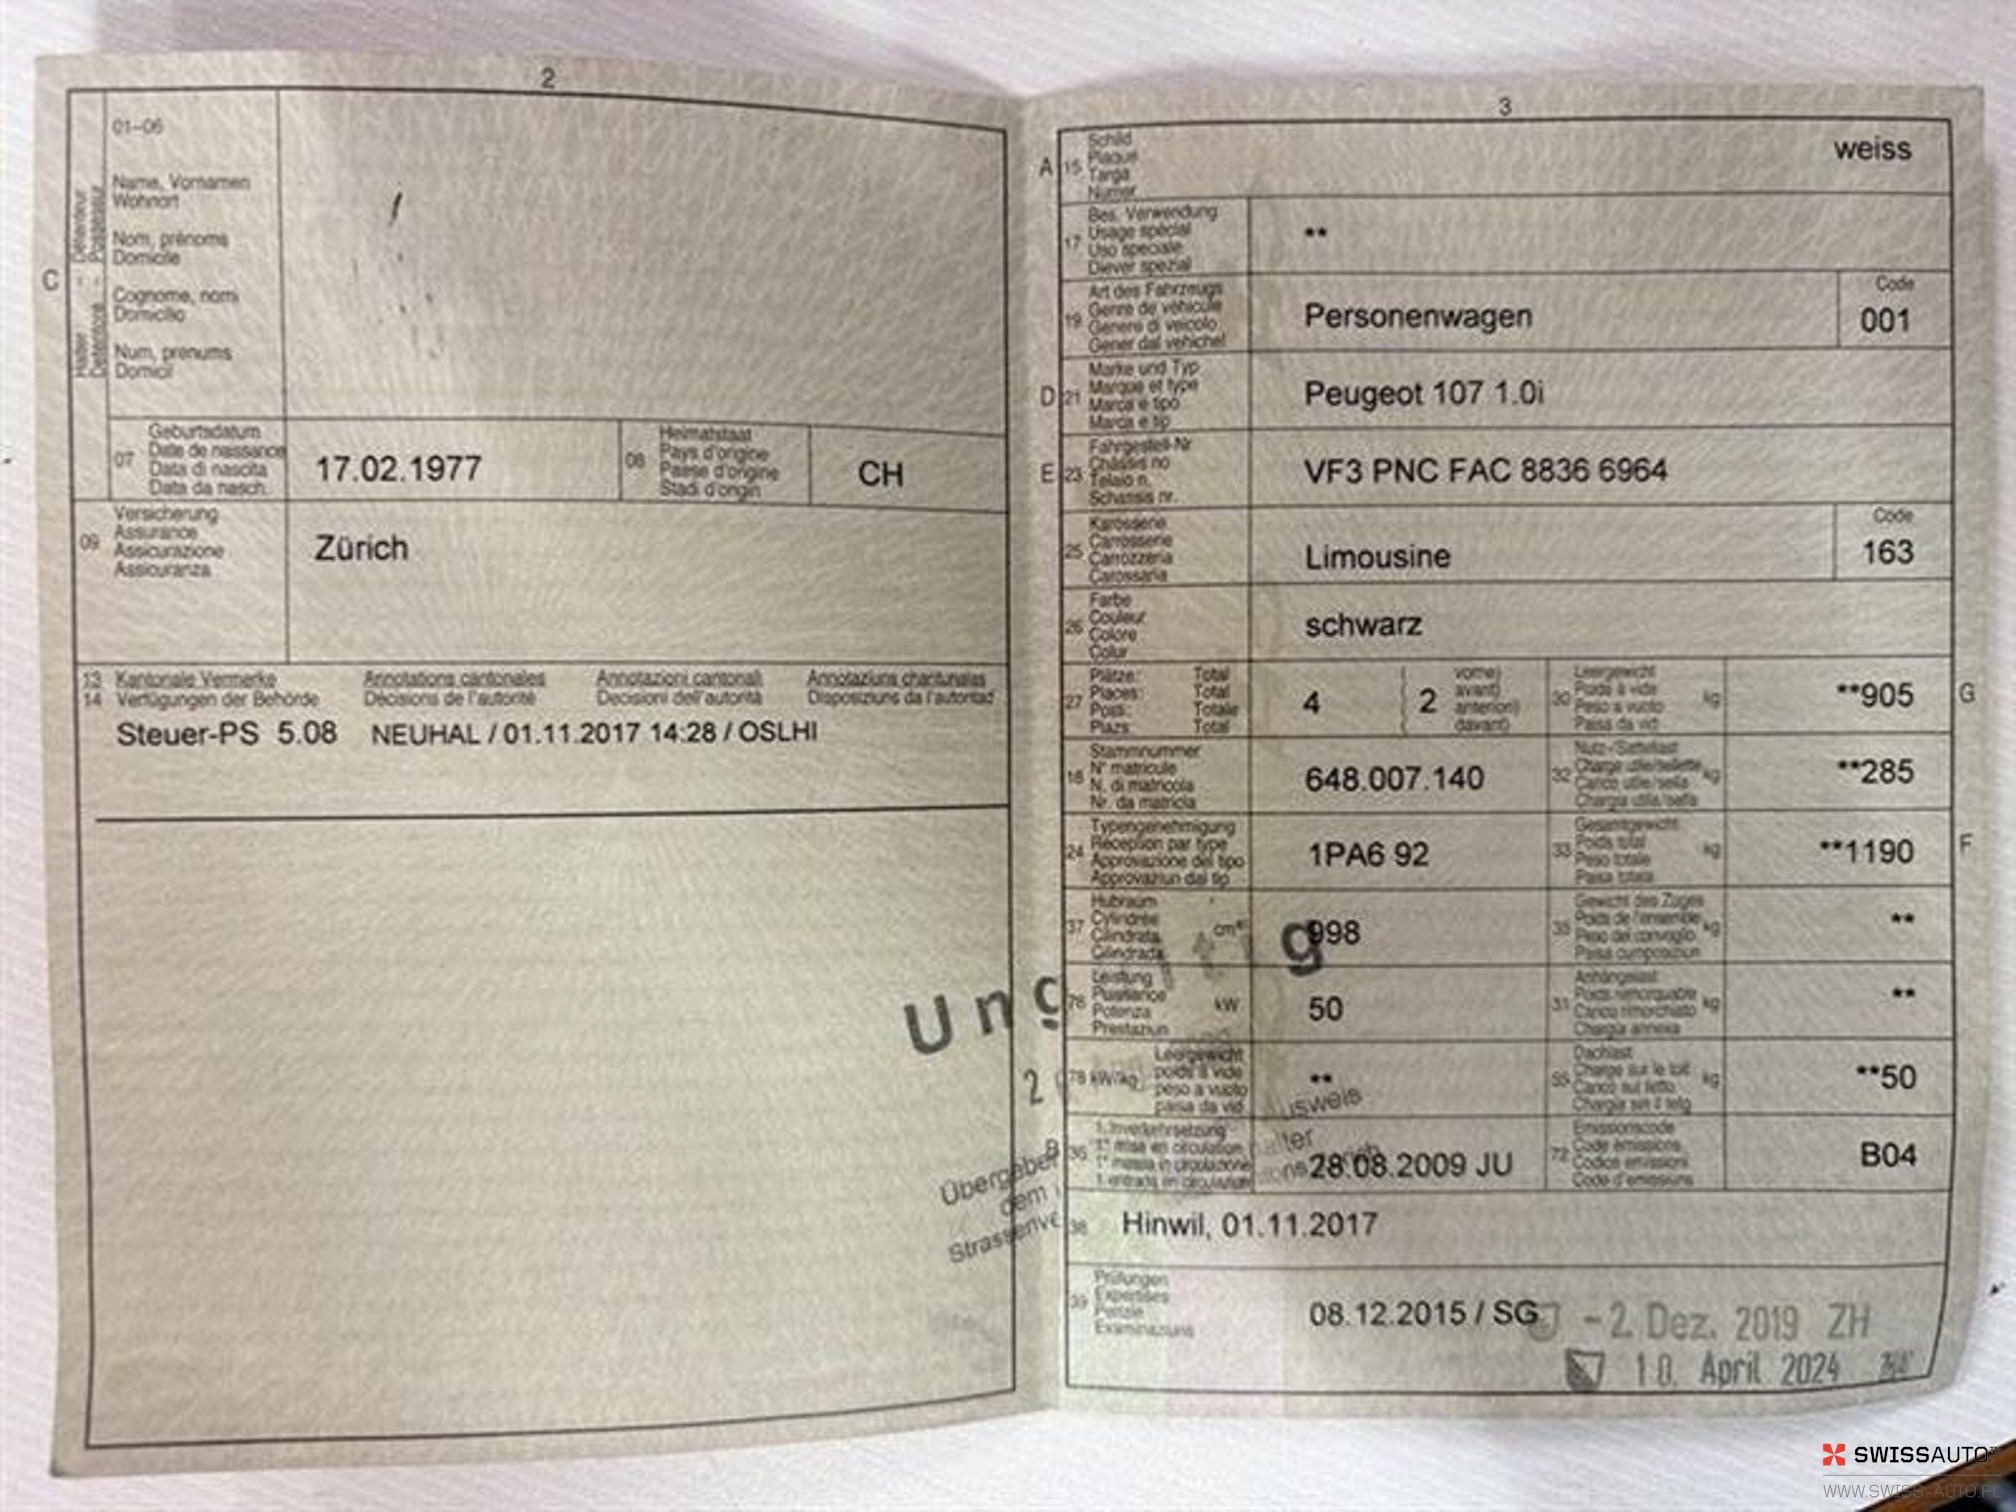 2
01-06
C
Halter - Détenteur
Detentore - Possessur
Name, Vornamen
Wohnort
Nom, prénoms
Domicile
Cognome, nomi
Domicilio
Num, prenums
Domicil
07
Geburtsdatum
Date de naissance
Data di nascita
Data da nasch.
17.02.1977
08
Heimatstaat
Pays d'origine
Paese d'origine
Stadi d'origin
CH
09
Versicherung
Assurance
Assicurazione
Assicuranza
Zürich
13 Kantonale Vermerke Annotations cantonales Annotazioni cantonali Annotaziuns chantunalas
14 Verfügungen der Behörde Décisions de l'autorité Decisioni dell'autorità Disposiziuns da l'autoritad
Steuer-PS 5.08 NEUHAL / 01.11.2017 14:28 / OSLHI
3
A
15
Schild
Plaque
Targa
Numer
weiss
17
Bes. Verwendung
Usage spécial
Uso speciale
Diever spezial
**
19
Art des Fahrzeugs
Genre de véhicule
Genere di veicolo
Gener dal vehichel
Personenwagen
Code
001
D
21
Marke und Typ
Marque et type
Marca e tipo
Marca e tip
Peugeot 107 1.0i
E
23
Fahrgestell-Nr.
Châssis no
Telaio n.
Schassis nr.
VF3 PNC FAC 8836 6964
25
Karosserie
Carrosserie
Carrozzeria
Carossaria
Limousine
Code
163
26
Farbe
Couleur
Colore
Colur
schwarz
27
Plätze: Total
Places: Total
Posti: Totale
Plazs: Total
4
( 2
vorne)
avant)
anteriori)
davant)
30
Leergewicht
Poids à vide
Peso a vuoto
Paisa da vid
kg
**905
G
18
Stammnummer
N° matricule
N. di matricola
Nr. da matricla
648.007.140
32
Nutz-/Sattellast
Charge utile/sellette
Carico utile/sella
Chargia utila/sella
kg
**285
24
Typengenehmigung
Réception par type
Approvazione del tipo
Approvaziun dal tip
1PA6 92
33
Gesamtgewicht
Poids total
Peso totale
Paisa totala
kg
**1190
F
37
Hubraum
Cylindrée
Cilindrata
Cilindrada
cm³
998
35
Gewicht des Zuges
Poids de l'ensemble
Peso del convoglio
Paisa cumposiziun
kg
**
76
Leistung
Puissance
Potenza
Prestaziun
kW
50
31
Anhängelast
Poids remorquable
Carico rimorchiato
Chargia annexa
kg
**
78 kW/kg
Leergewicht
poids à vide
peso a vuoto
paisa da vid
**
55
Dachlast
Charge sur le toit
Carico sul tetto
Chargia sin il tetg
kg
**50
36
1. Inverkehrsetzung
1re mise en circulation
1a messa in circolazione
1. entrada en circulaziun
28.08.2009 JU
72
Emissionscode
Code émissions
Codice emissioni
Code d'emissiuns
B04
38
Hinwil, 01.11.2017
39
Prüfungen
Expertises
Perizie
Examinaziuns
08.12.2015 / SG
-2. Dez. 2019 ZH
10. April 2024
Ung
g
2
usweis
Übergeben
alter
dem
Strassenve
SWISSAUTO
WWW.SWISS-AUTO.PL